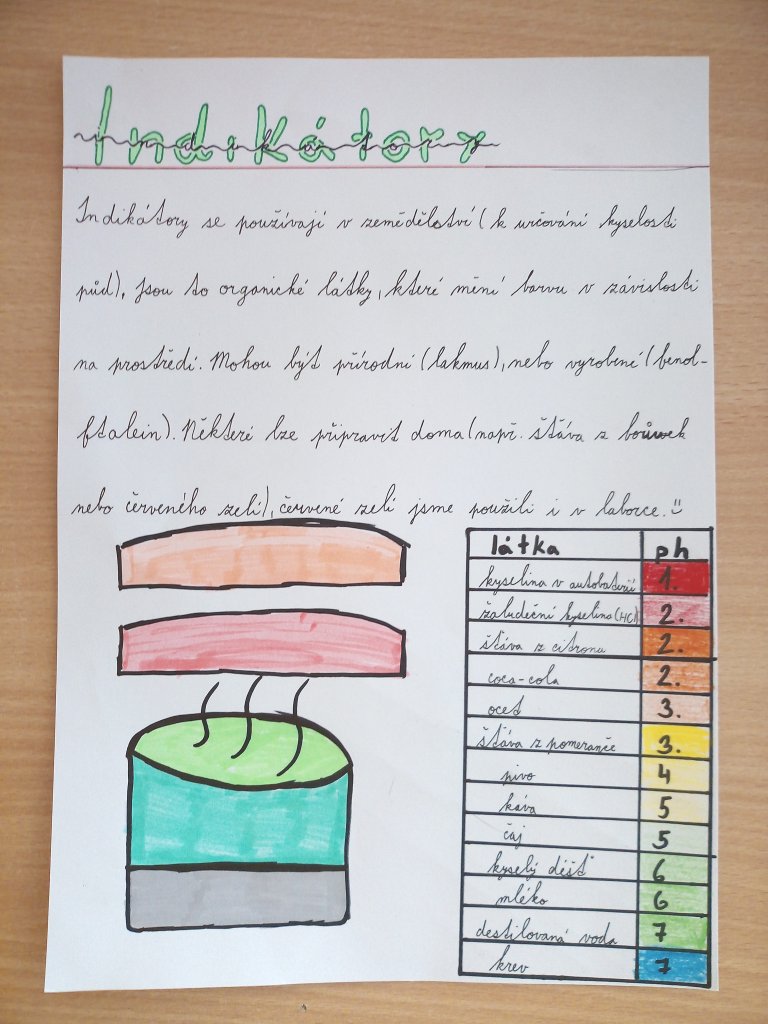 Indikátory
Indikátory se používají v zemědělství (k určování kyselosti
půd), jsou to organické látky, které mění barvu v závislosti
na prostředí. Mohou být přírodní (lakmus), nebo vyrobené (fenol-
ftalein). Některé lze připravit doma (např. štáva z borůvek
nebo červeného zelí), červené zelí jsme použili i v laborce. :)
látka ph
kyselina v autobaterii 1.
žaludeční kyselina (HCl) 2.
štáva z citronu 2.
coca-cola 2.
ocet 3.
štáva z pomeranče 3.
pivo 4
káva 5
čaj 5
kyselý déšť 6
mléko 6
destilovaná voda 7
krev 7